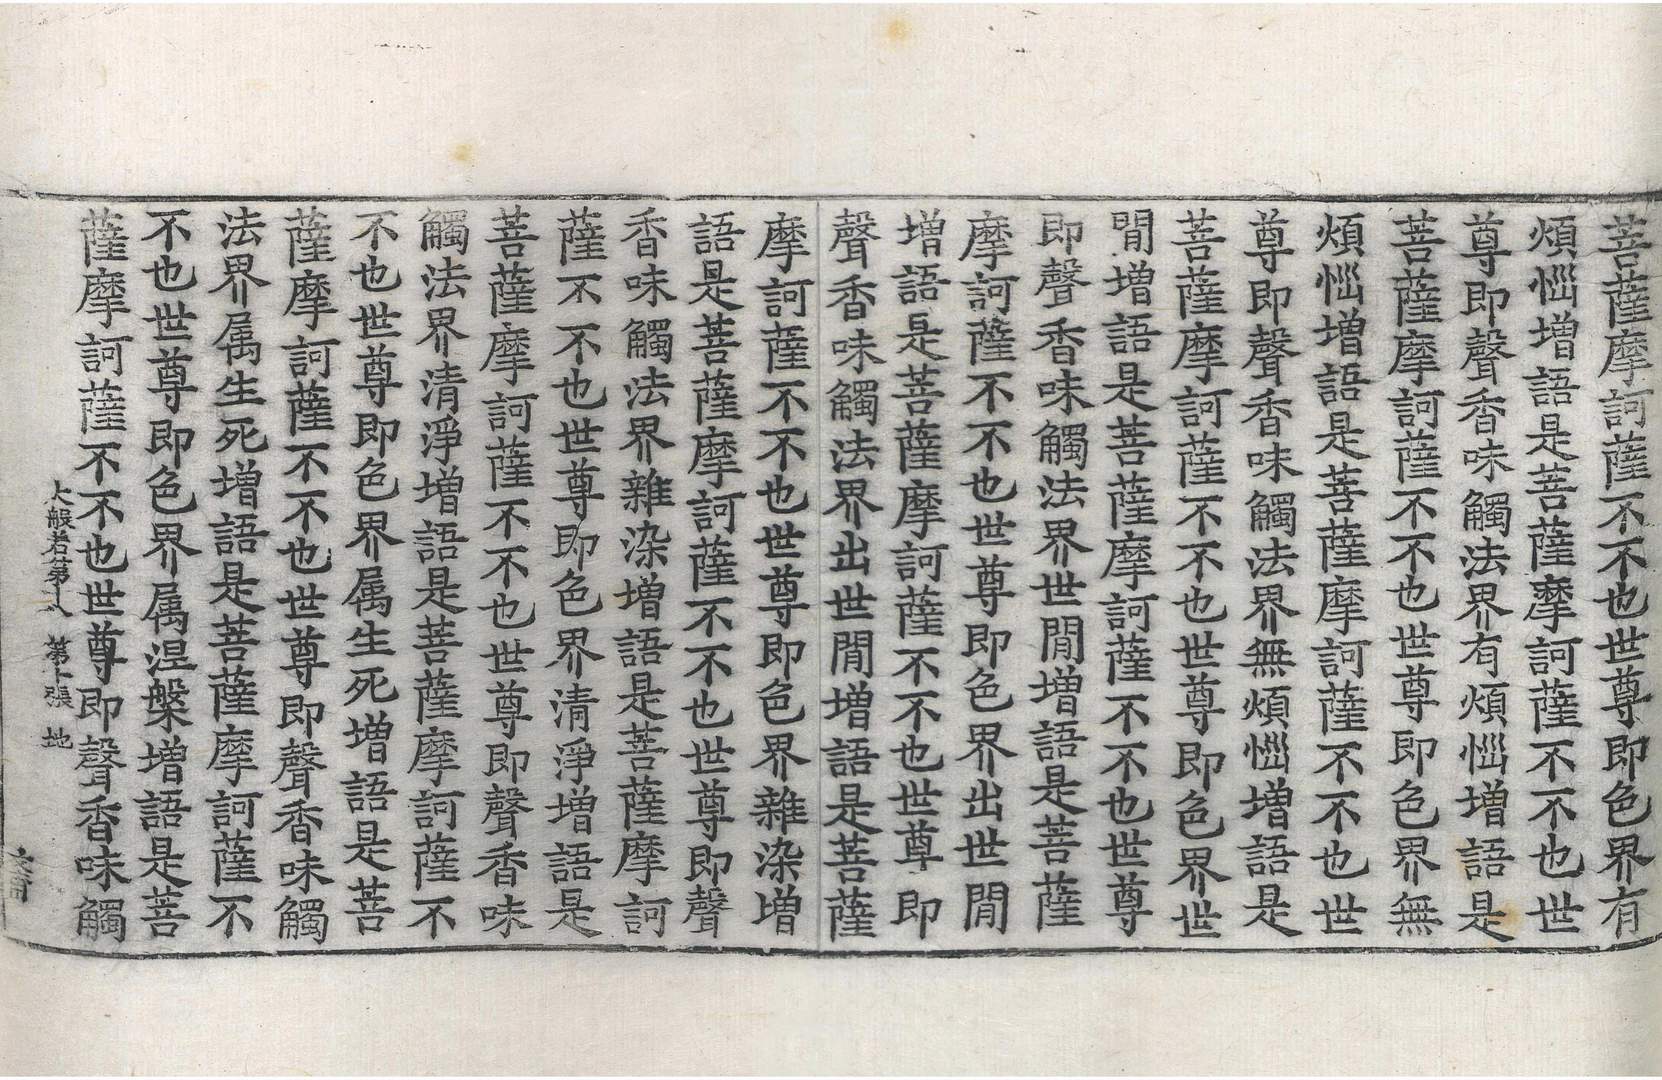 菩薩摩訶薩不不也世尊即色界有
煩惱增語是菩薩摩訶薩不不也世
尊即聲香味觸法界有煩惱增語是
菩薩摩訶薩不不也世尊即色界無
煩惱增語是菩薩摩訶薩不不也世
尊即聲香味觸法界無煩惱增語是
菩薩摩訶薩不不也世尊即色界世
閒增語是菩薩摩訶薩不不也世尊
即聲香味觸法界世閒增語是菩薩
摩訶薩不不也世尊即色界出世閒
增語是菩薩摩訶薩不不也世尊即
聲香味觸法界出世閒增語是菩薩
摩訶薩不不也世尊即色界雜染增
語是菩薩摩訶薩不不也世尊即聲
香味觸法界雜染增語是菩薩摩訶
薩不不也世尊即色界清淨增語是
菩薩摩訶薩不不也世尊即聲香味
觸法界清淨增語是菩薩摩訶薩不
不也世尊即色界属生死增語是菩
薩摩訶薩不不也世尊即聲香味觸
法界属生死增語是菩薩摩訶薩不
不也世尊即色界属涅槃增語是菩
薩摩訶薩不不也世尊即聲香味觸
大般若第十八 第十張 地